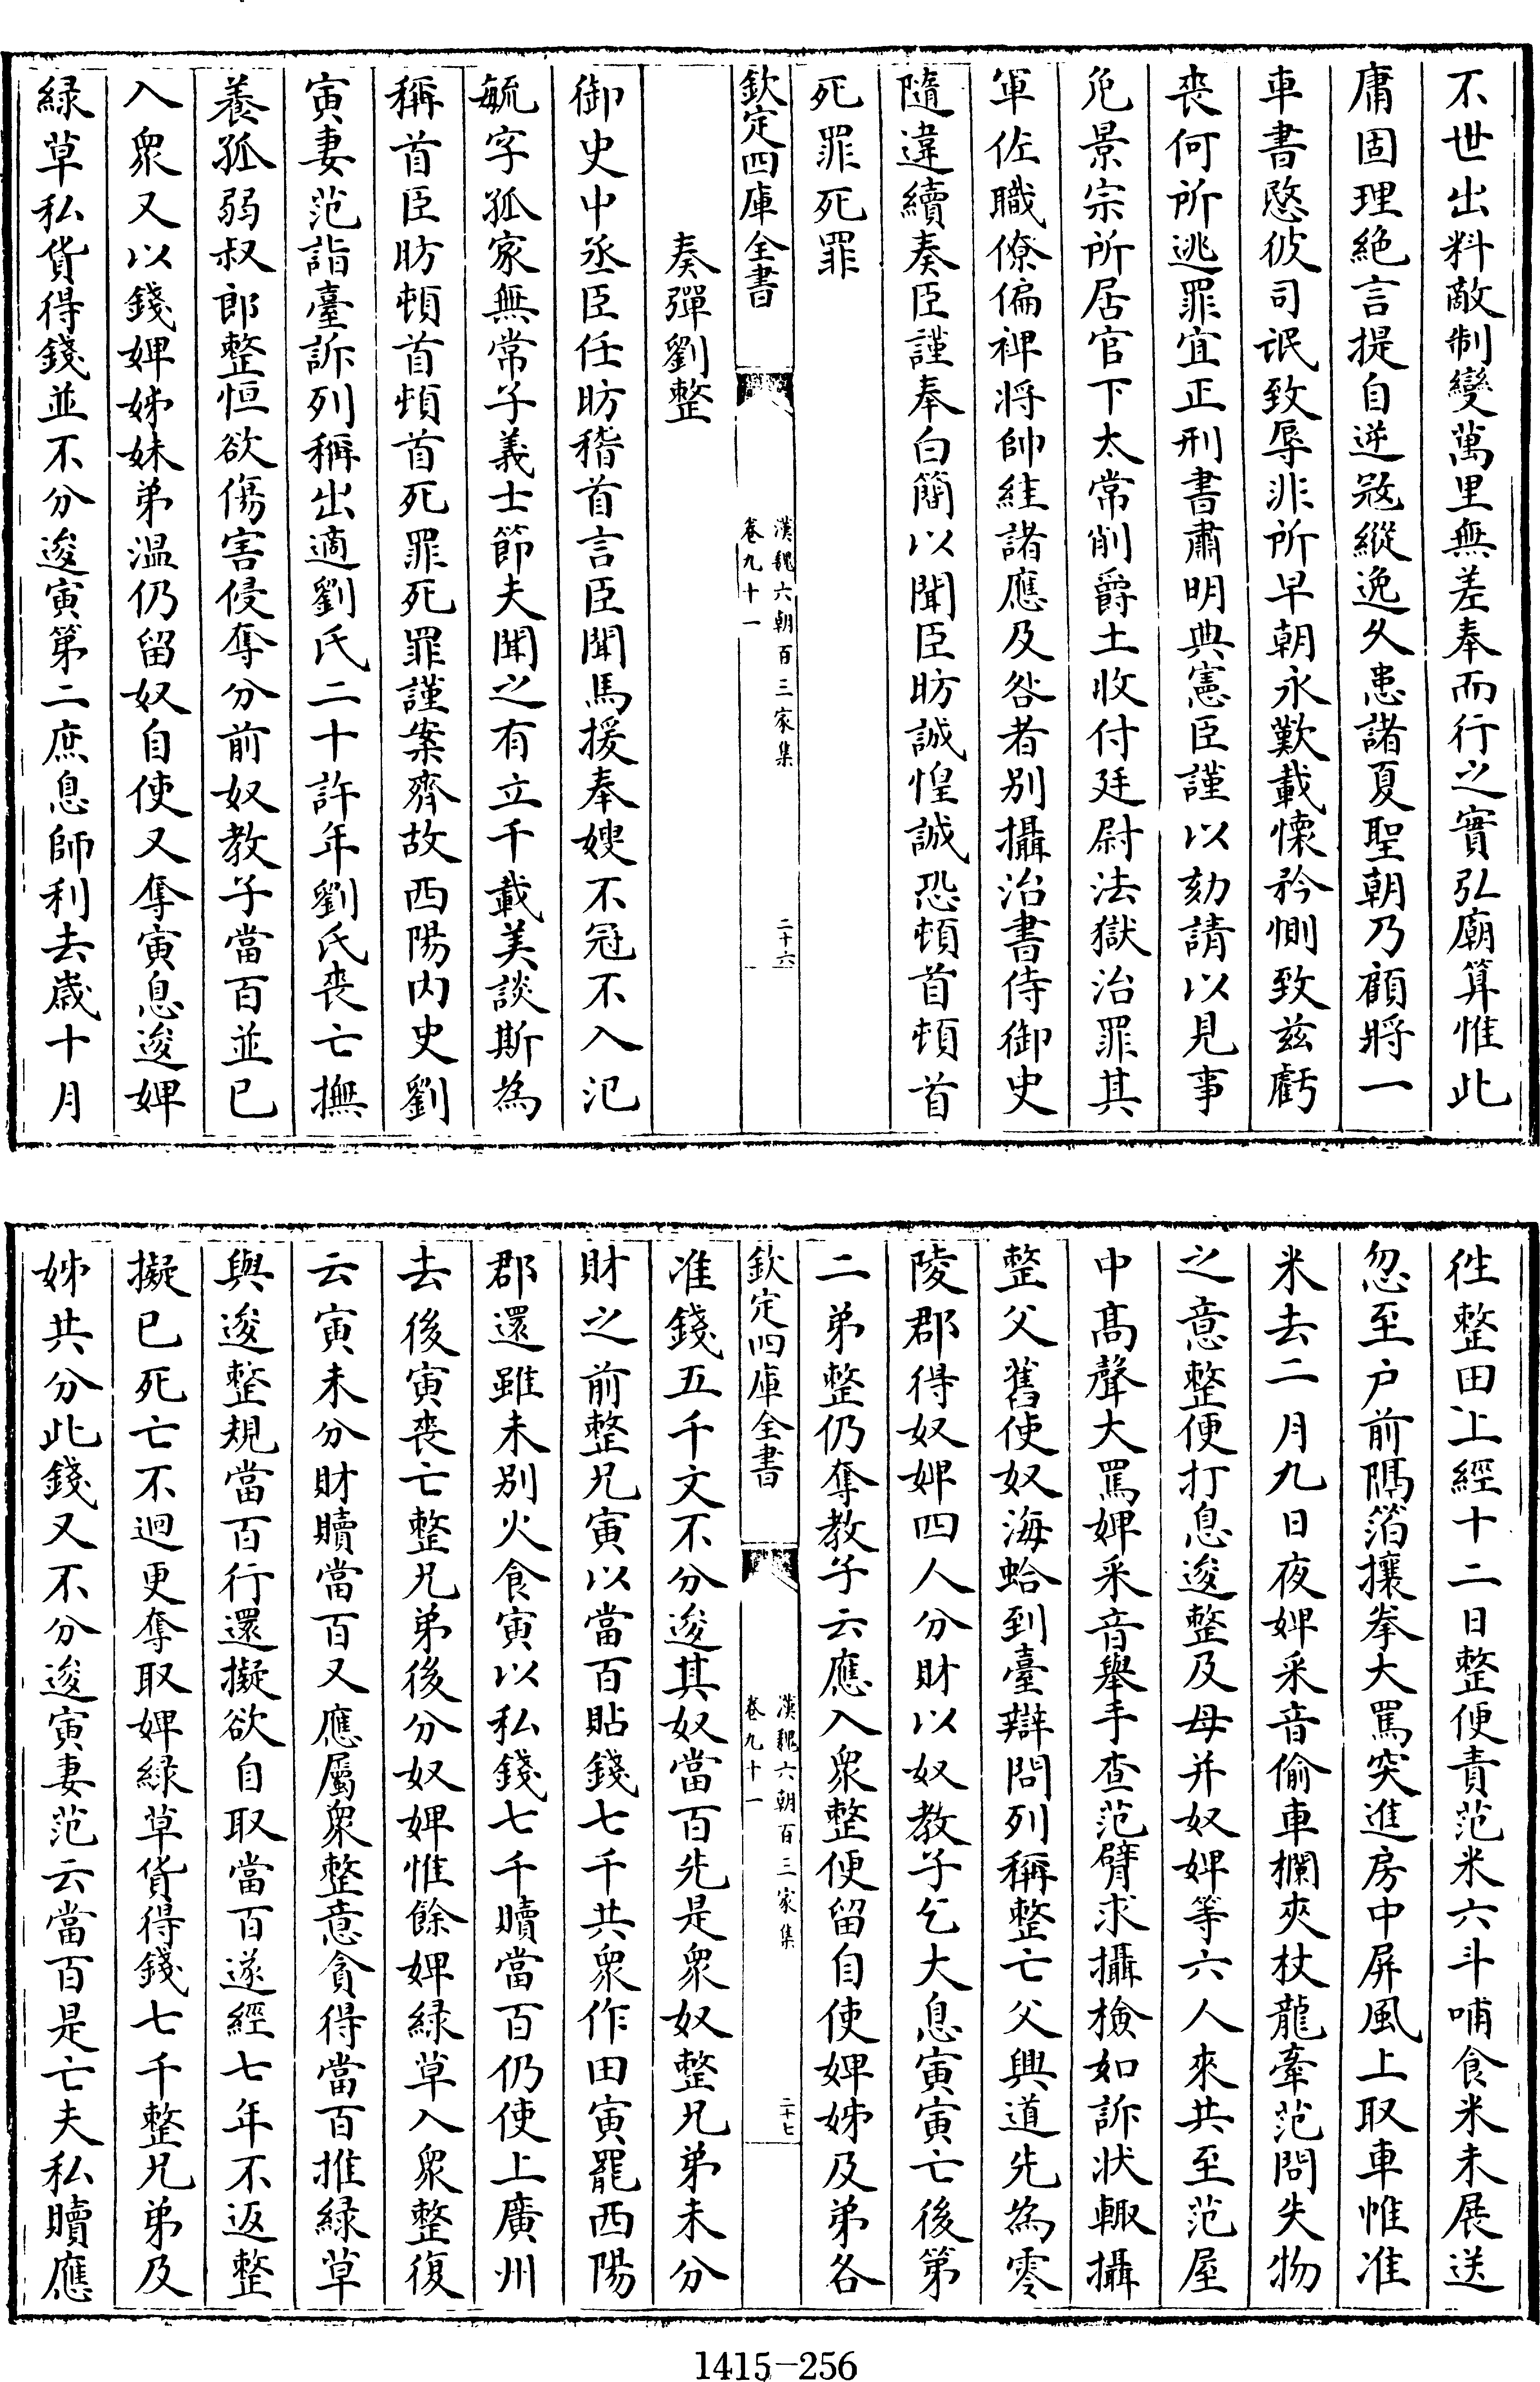 不世出料敵制變萬里無差奉而行之實弘廟算惟此
庸固理絕言提自逆冦縱逸乆患諸夏聖朝乃顧將一
車書愍彼司氓致辱非所早朝永歎載懐矜惻致兹虧
喪何所逃罪宜正刑書肅明典憲臣謹以劾請以見事
免景宗所居官下太常削爵土收付廷尉法獄治罪其
軍佐職僚偏裨將帥絓諸應及咎者别攝治書侍御史
隨違續奏臣謹奉白簡以聞臣昉誠惶誠恐頓首頓首
死罪死罪
欽定四庫全書
漢魏六朝百三家集
卷九十一
二十六
奏彈劉整
御史中丞臣任昉稽首言臣聞馬援奉嫂不冠不入氾
毓字孤家無常子義士節夫聞之有立千載美談斯為
稱首臣昉頓首頓首死罪死罪謹案齊故西陽内史劉
寅妻范詣臺訴列稱出適劉氏二十許年劉氏喪亡撫
養孤弱叔郎整恒欲傷害侵奪分前奴教子當百並已
入衆又以錢婢姊妹弟溫仍留奴自使又奪寅息逡婢
緑草私貨得錢並不分逡寅第二庶息師利去歲十月
徃整田上經十二日整便責范米六斗哺食米未展送
忽至户前隔箔攘拳大罵突進房中屏風上取車帷准
米去二月九日夜婢釆音偷車欄夾杖龍牽范問失物
之意整便打息逡整及母并奴婢等六人來共至范屋
中高聲大罵婢釆音舉手查范臂求攝檢如訴狀輙攝
整父舊使奴海蛤到臺辯問列稱整亡父興道先為零
陵郡得奴婢四人分財以奴教子乞大息寅寅亡後第
二弟整仍奪教子云應入衆整便留自使婢姊及弟各
欽定四庫全書
漢魏六朝百三家集
卷九十一
二十七
准錢五千文不分逡其奴當百先是衆奴整兄弟未分
財之前整兄寅以當百貼錢七千共衆作田寅罷西陽
郡還雖未别火食寅以私錢七千贖當百仍使上廣州
去後寅喪亡整兄弟後分奴婢惟餘婢緑草入衆整復
云寅未分財贖當百又應屬衆整意貪得當百推緑草
與逡整規當百行還擬欲自取當百遂經七年不返整
擬已死亡不迴更奪取婢緑草貨得錢七千整兄弟及
姊共分此錢又不分逡寅妻范云當百是亡夫私贖應
1415-256